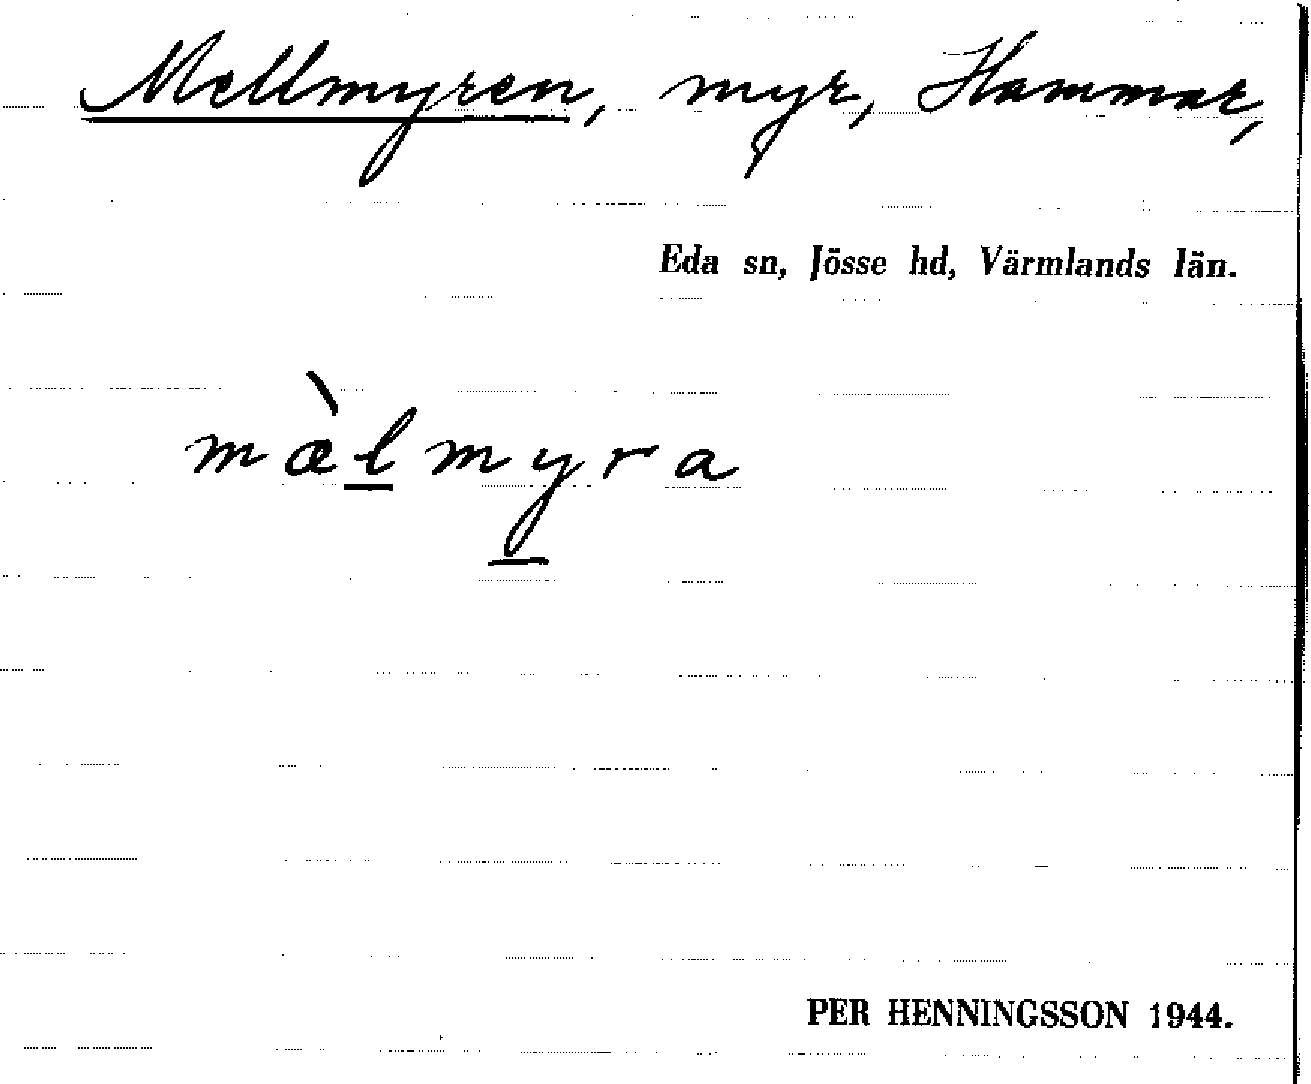 Mellmyren, myr, Hammar,
Eda sn, Jösse hd, Värmlands län.
mæ̀l̲my̲ra
PER HENNINGSSON 1944.